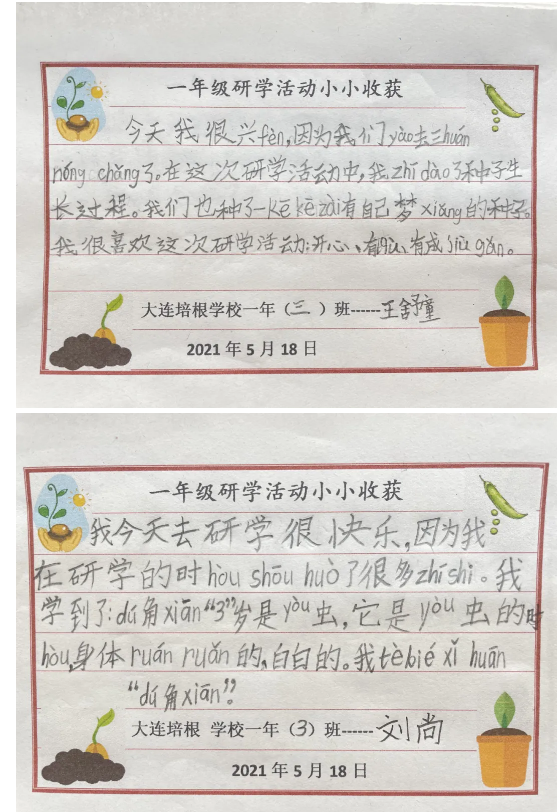 一年级研学活动小小收获
今天我很兴fèn,因为我们yào去zhuán
nóng chǎng了。在这次研学活动中,我zhī dào了种子生
长过程。我们也种了一kē kē zài有自己梦xiǎng的种子。
我很喜欢这次研学活动:开心、有qù、有成jiù gǎn。
大连培根学校一年(三)班------王舒童
2021年5月18日
一年级研学活动小小收获
我今天去研学很快乐,因为我
在研学的时hòu shōu huò了很多zhī shi。我
学到了:dú角xiān“3”岁是yòu虫,它是yòu虫的时
hòu,身体ruán ruǎn的,白白的。我tè bié xǐ huān
“dú角xiān”。
大连培根 学校一年(3)班------刘尚
2021年5月18日